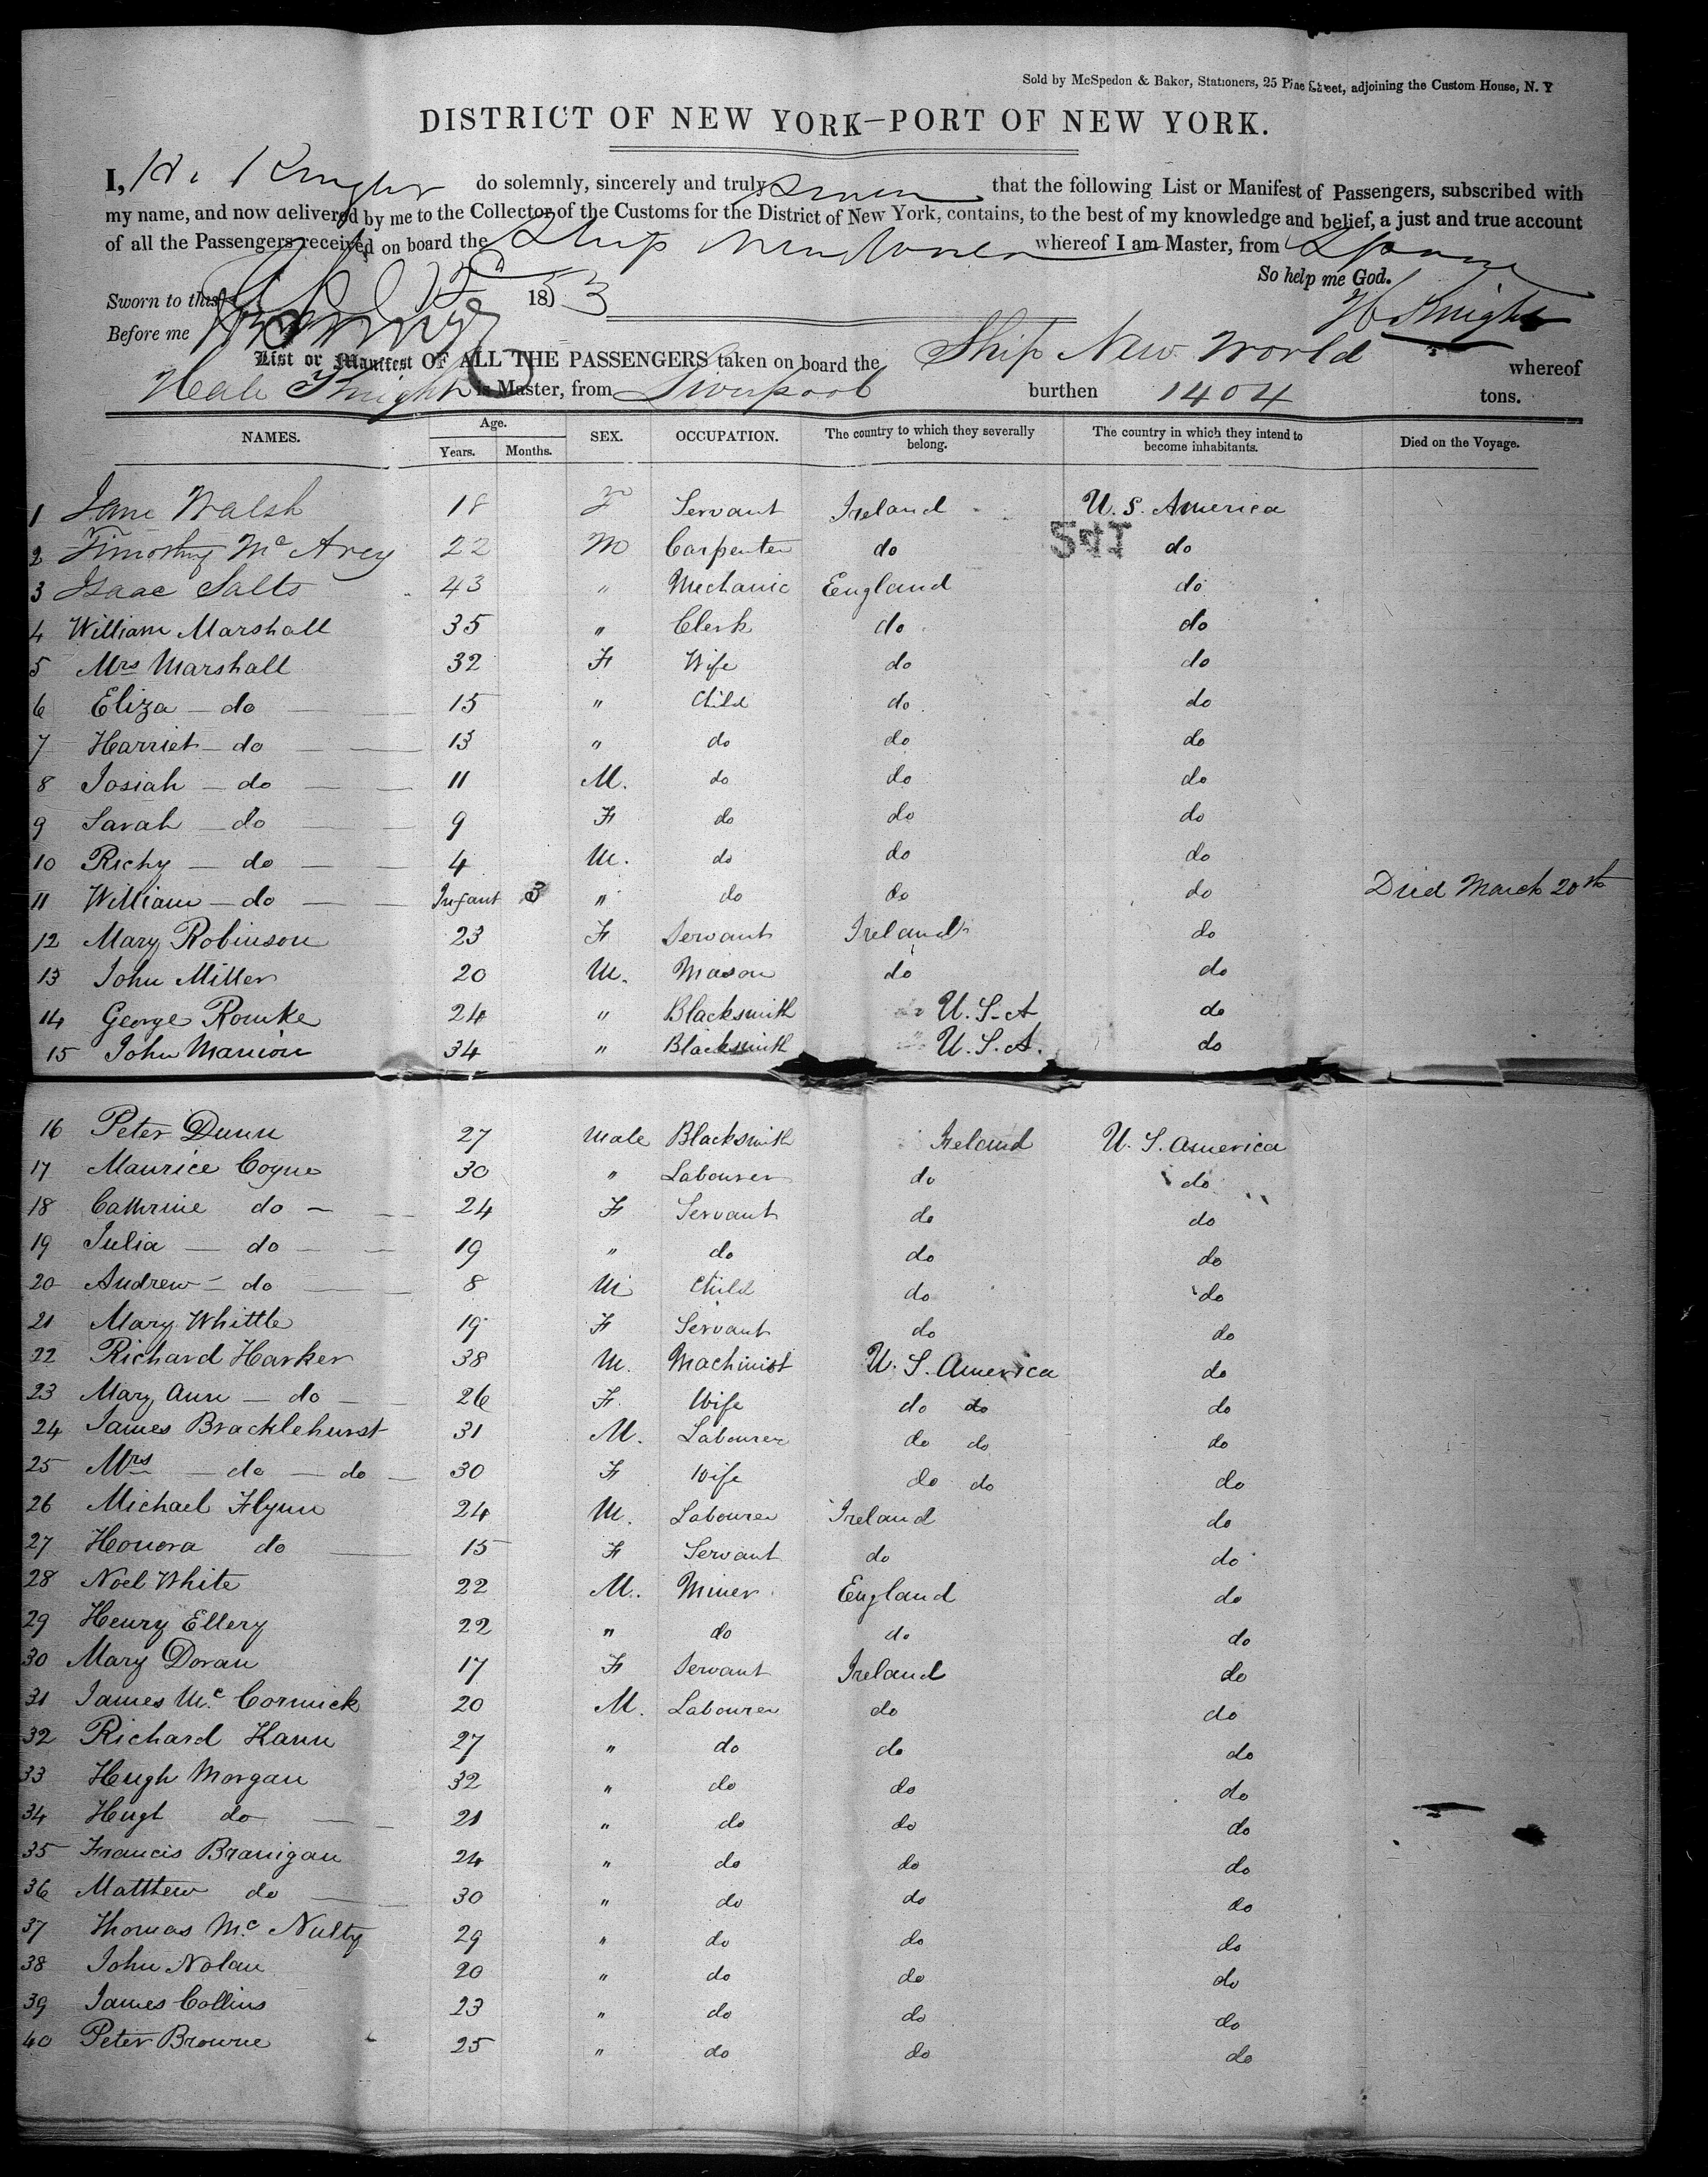 Sold by McSpedon & Baker, Stationers, 25 Pine Street, adjoining the Custom House, N. Y
DISTRICT OF NEW YORK—PORT OF NEW YORK.
I, H. Knight do solemnly, sincerely and truly swear that the following List or Manifest of Passengers, subscribed with
my name, and now delivered by me to the Collector of the Customs for the District of New York, contains, to the best of my knowledge and belief, a just and true account
of all the Passengers received on board the Ship New World whereof I am Master, from
So help me God.
Sworn to this 1853
H Knight
Before me
List or Manifest OF ALL THE PASSENGERS taken on board the Ship New World whereof
Heale Knight is Master, from Liverpool burthen 1404 tons.
NAMES. Age. Years. Months. SEX. OCCUPATION. The country to which they severally belong. The country in which they intend to become inhabitants. Died on the Voyage.
1 Jane Walsh 18 F Servant Ireland U. S. America
2 Timothy Mc Arey 22 M Carpenter do do
3 Isaac Salts 43 " Mechanic England do
4 William Marshall 35 " Clerk do do
5 Mrs Marshall 32 F Wife do do
6 Eliza — do — 15 " Child do do
7 Harriet — do — 13 " do do do
8 Josiah — do — 11 M. do do do
9 Sarah — do — 9 F do do do
10 Richy — do — 4 M. do do do
11 William — do — Infant 3 " do do do Died March 20th
12 Mary Robinson 23 F Servant Ireland do
13 John Miller 20 M. Mason do do
14 George Rourke 24 " Blacksmith U. S. A do
15 John Manion 34 " Blacksmith U. S. A. do
16 Peter Dunn 27 Male Blacksmith Ireland U. S. America
17 Maurice Coyne 30 " Labourer do do
18 Cathrine do — 24 F Servant do do
19 Julia — do — 19 " do do do
20 Andrew — do — 8 M Child do do
21 Mary Whittle 19 F Servant do do
22 Richard Harker 38 M. Machinist U. S. America do
23 Mary Ann — do — 26 F. Wife do do do
24 James Bracklehurst 31 M. Labourer do do do
25 Mrs — do — do — 30 F Wife do do do
26 Michael Flynn 24 M. Labourer Ireland do
27 Honora do — 15 F Servant do do
28 Noel White 22 M. Miner England do
29 Henry Ellery 22 " do do do
30 Mary Doran 17 F Servant Ireland do
31 James Mc Cormick 20 M. Labourer do do
32 Richard Hann 27 " do do do
33 Hugh Morgan 32 " do do do
34 Hugh do — 21 " do do do
35 Francis Branigan 24 " do do do
36 Matthew do — 30 " do do do
37 Thomas Mc Nulty 29 " do do do
38 John Nolan 20 " do do do
39 James Collins 23 " do do do
40 Peter Browne 25 " do do do